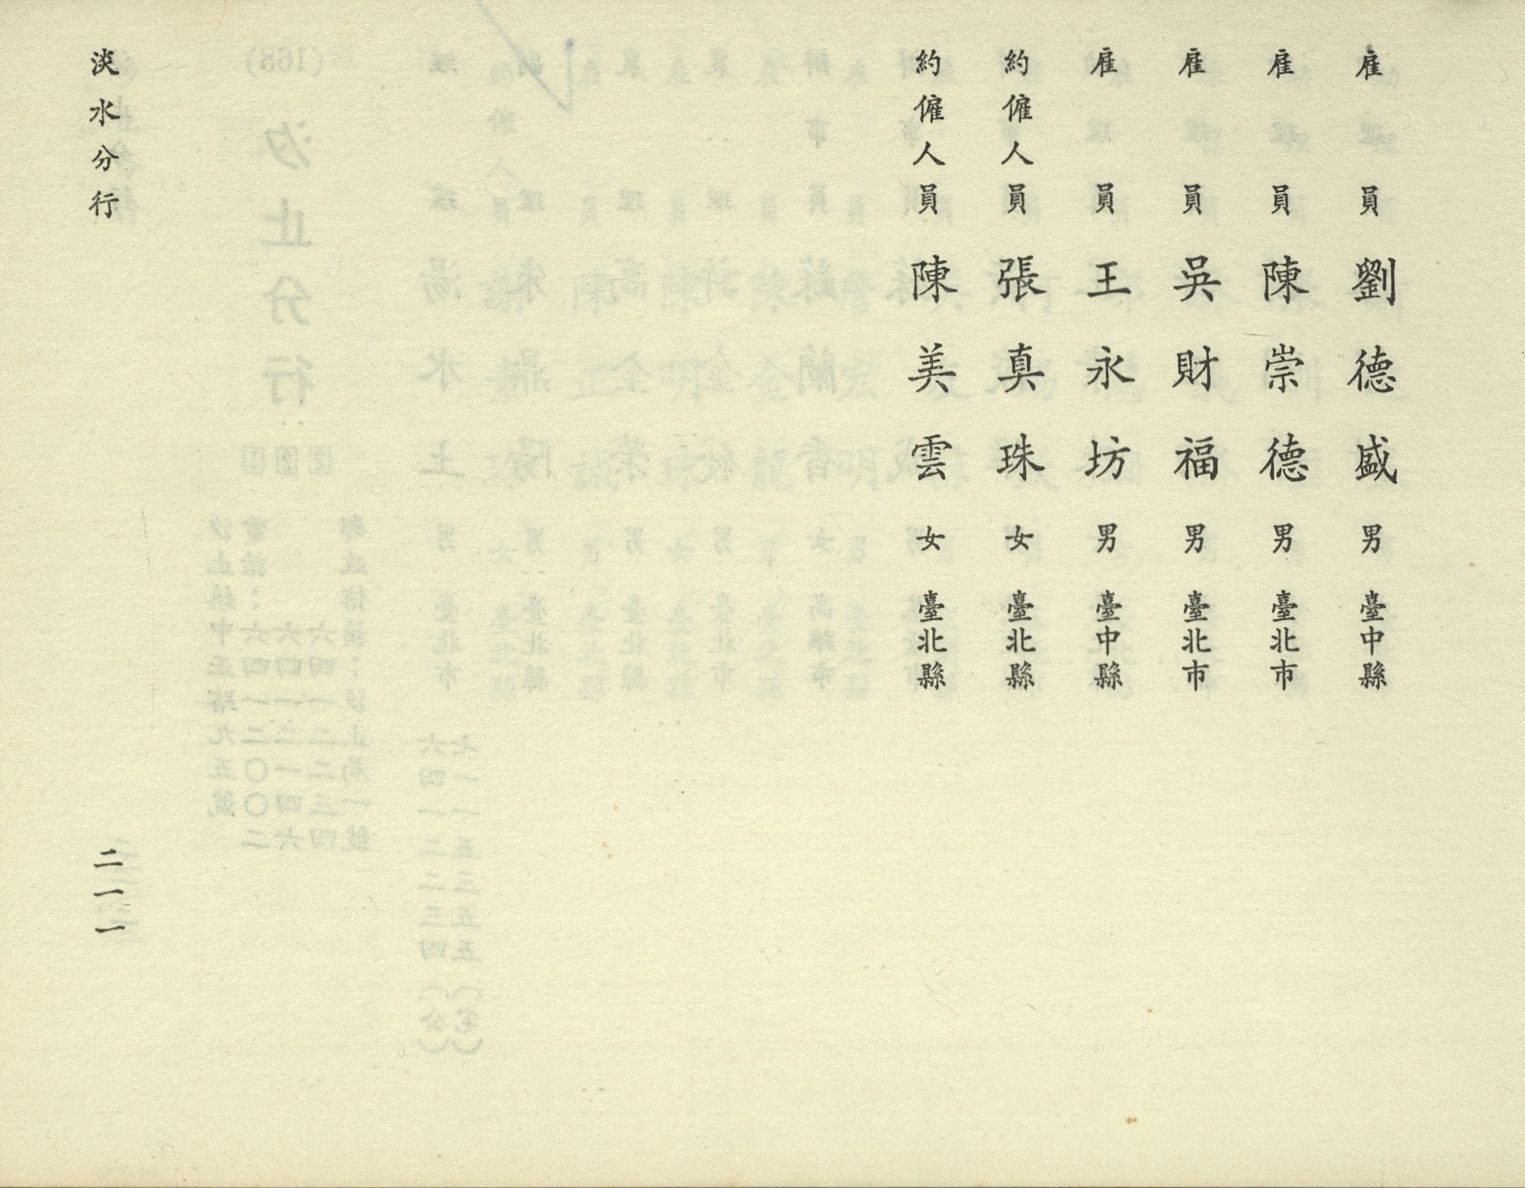 雇員劉德盛男臺中縣
雇員陳崇德男臺北市
雇員吳財福男臺北市
雇員王永坊男臺中縣
約僱人員張真珠女臺北縣
約僱人員陳美雲女臺北縣
淡水分行
二一一